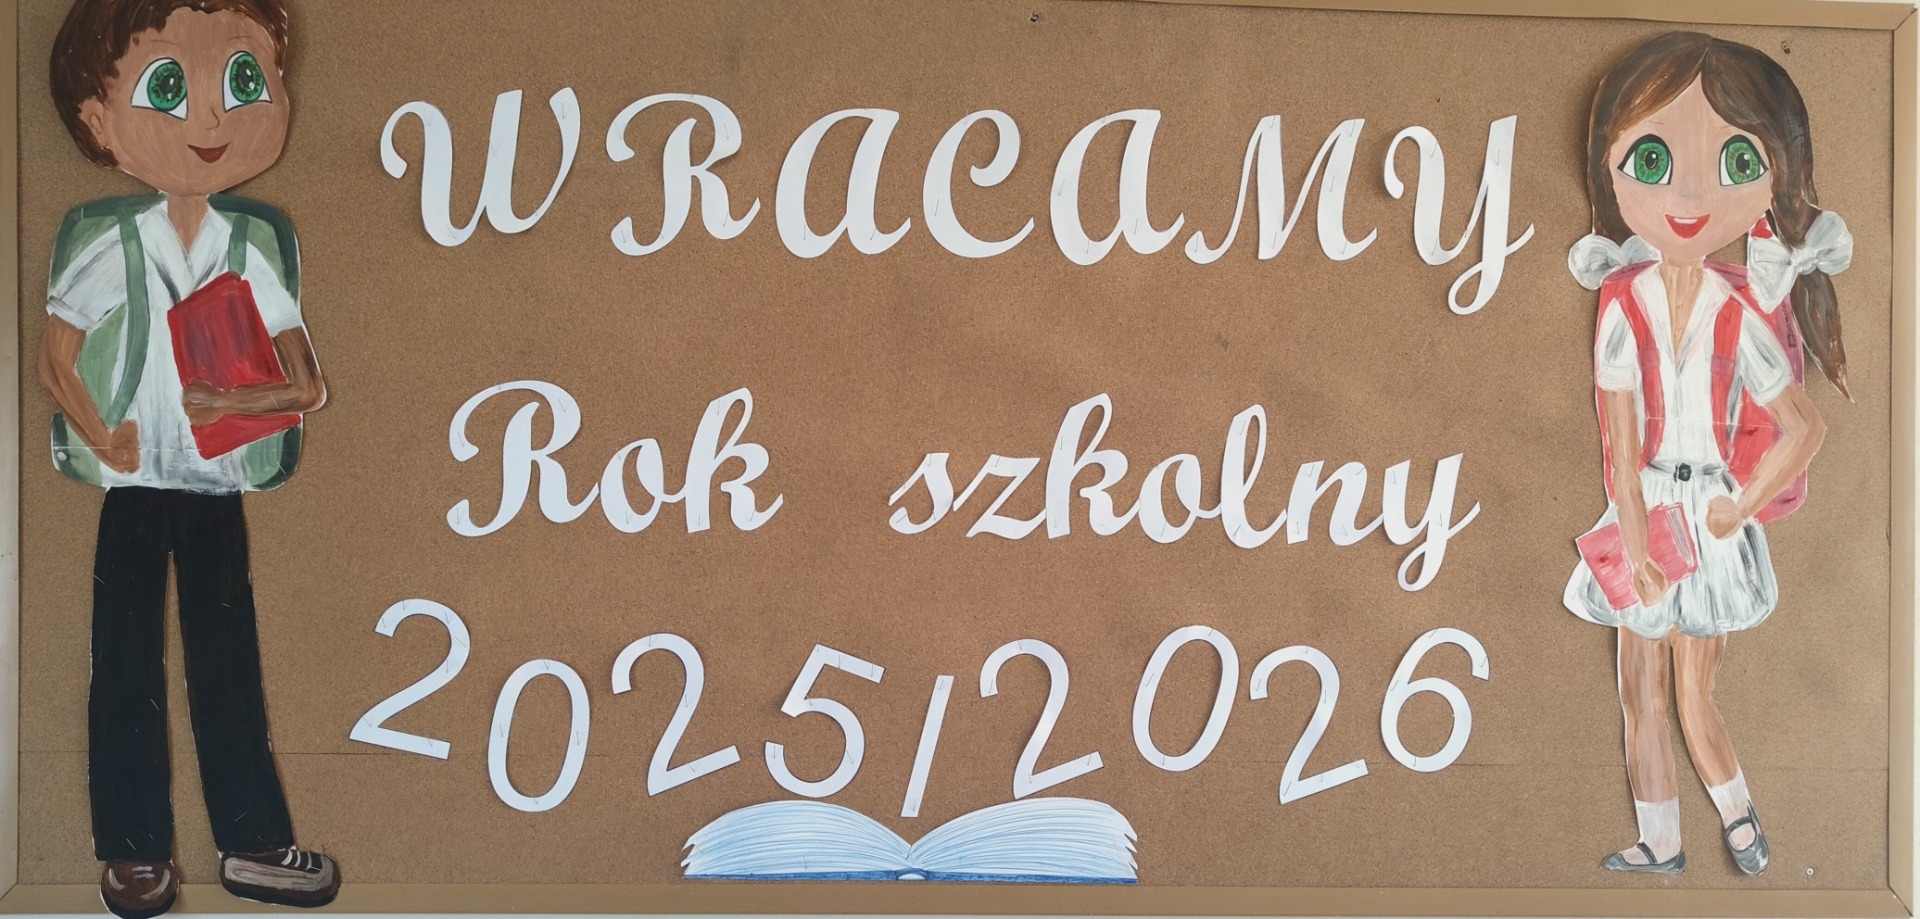 WRACAMY
Rok szkolny
2025/2026